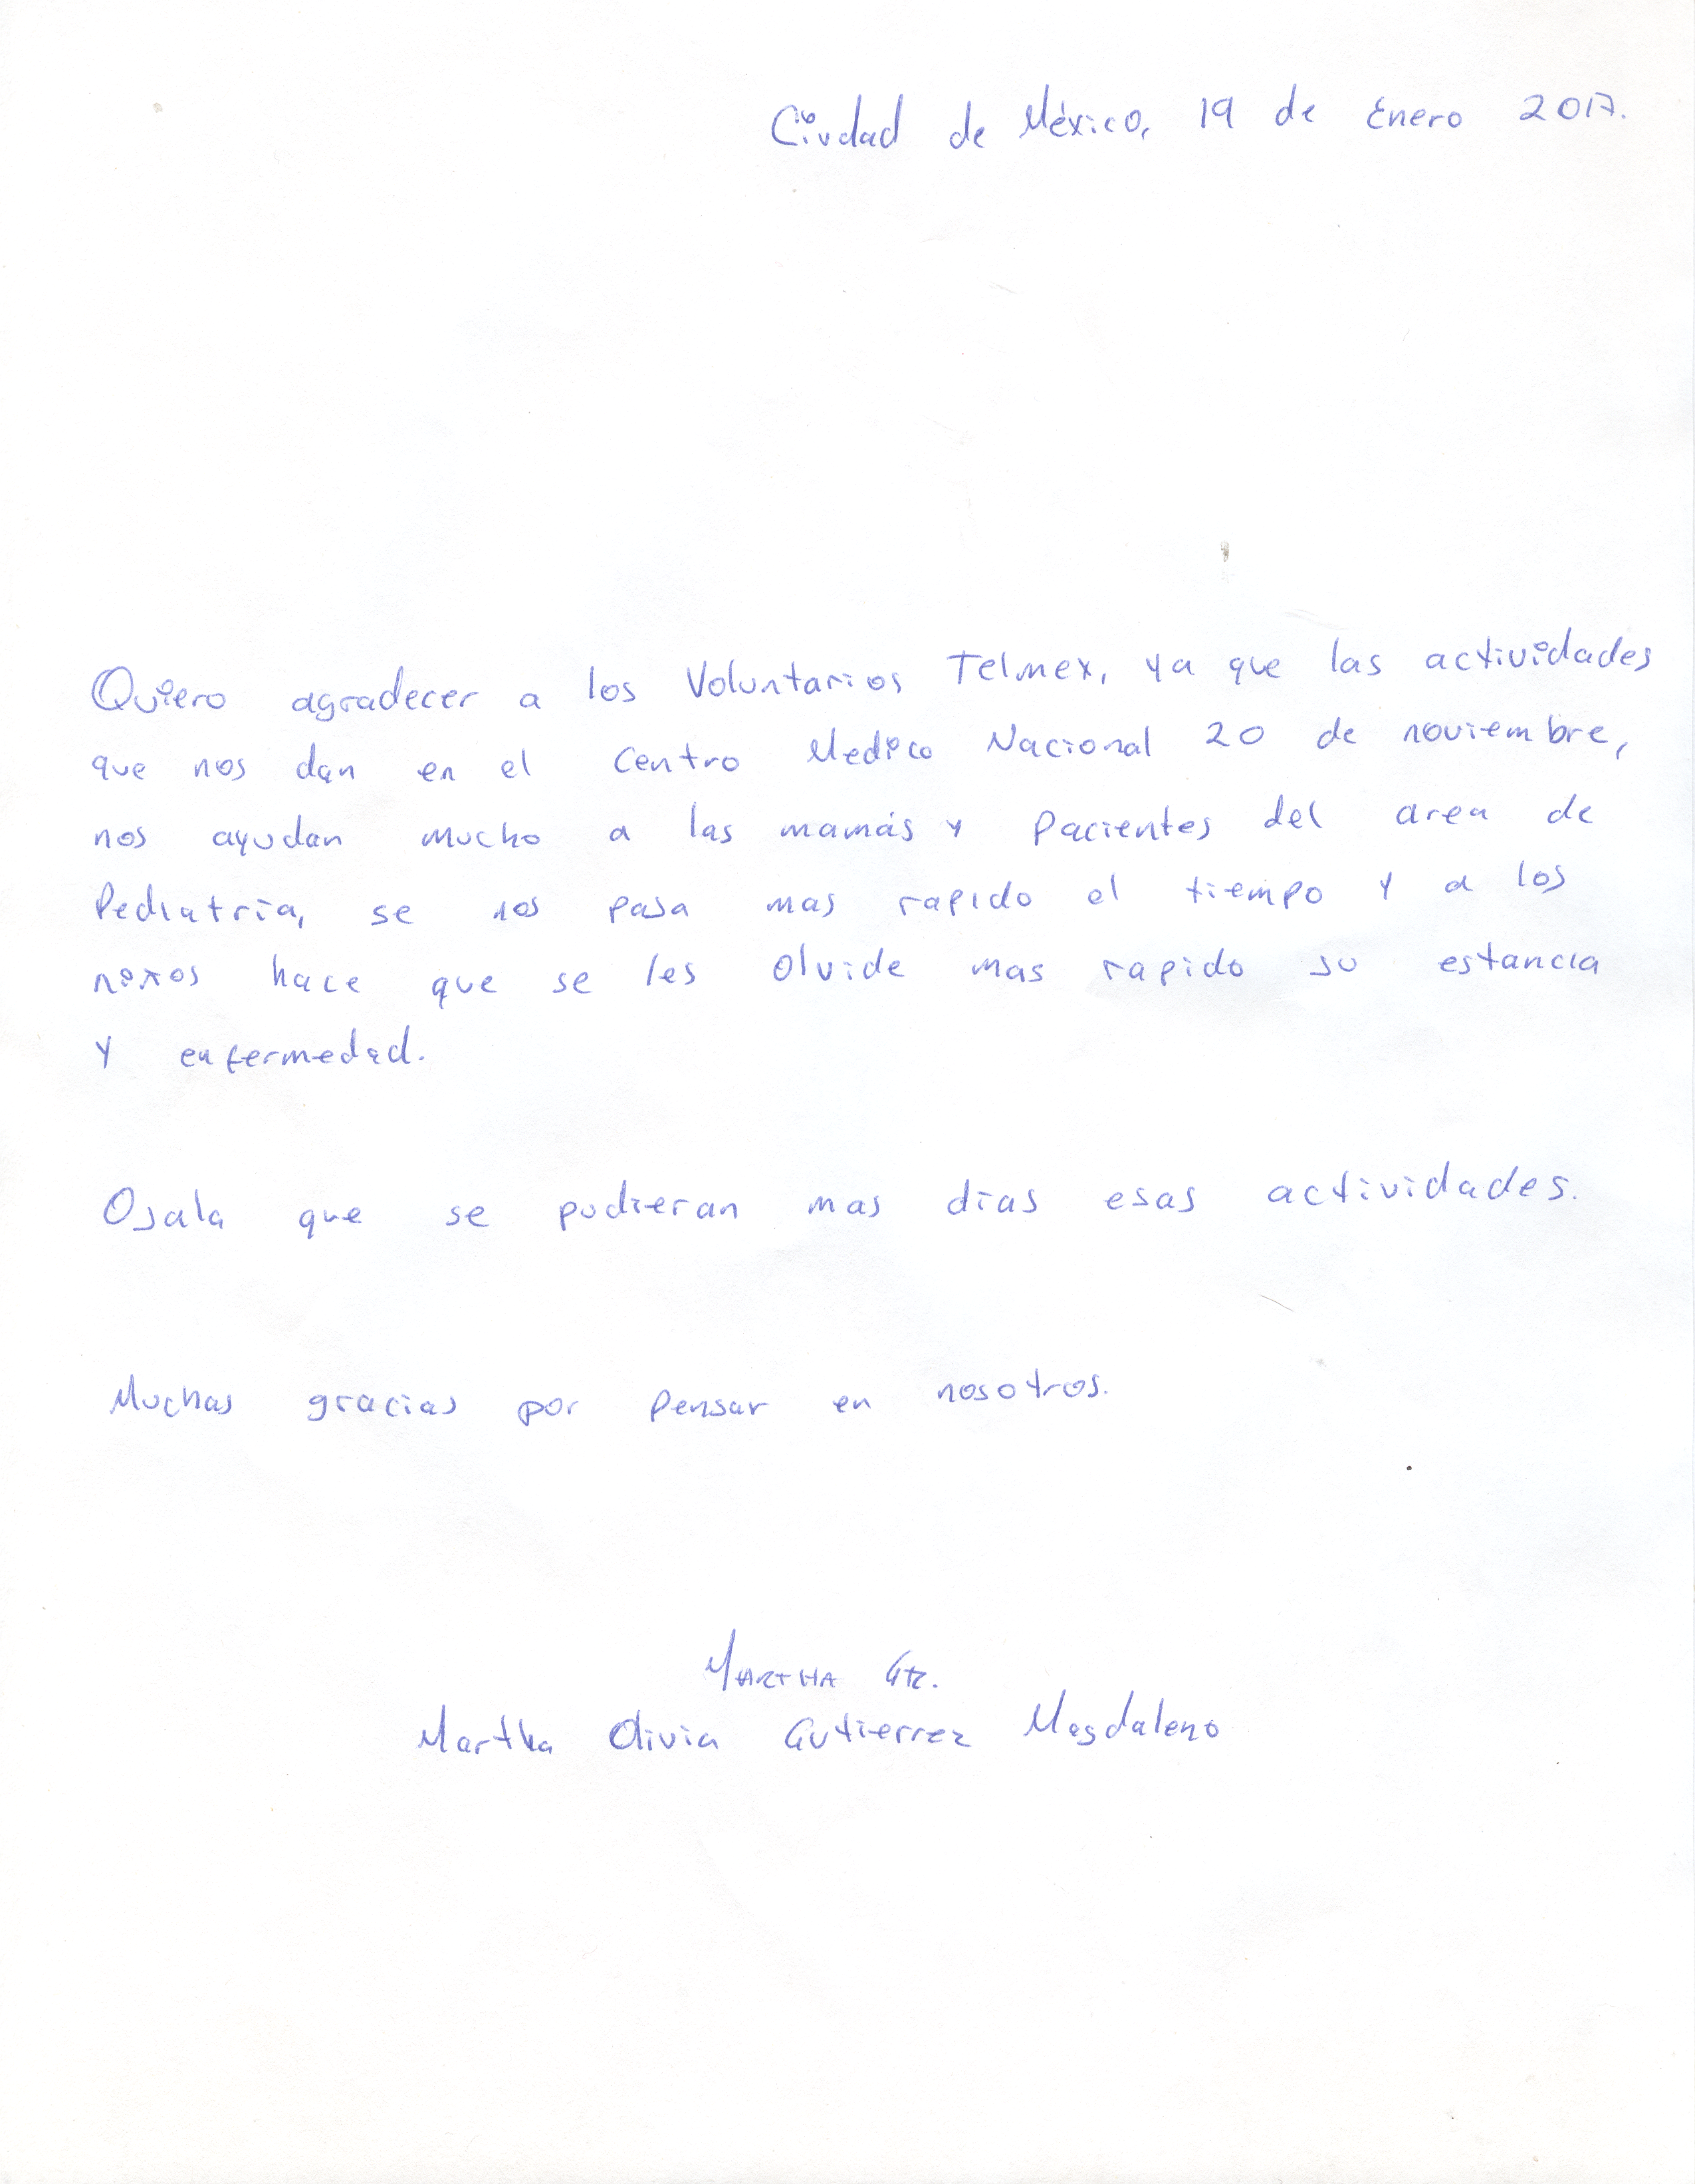 Ciudad de México, 19 de Enero 2017.
Quiero agradecer a los Voluntarios Telmex, ya que las actividades
que nos dan en el Centro Medico Nacional 20 de noviembre,
nos ayudan mucho a las mamás y Pacientes del area de
Pediatría, se nos pasa mas rapido el tiempo y a los
niños hace que se les olvide mas rapido su estancia
y enfermedad.
Ojala que se pudieran mas dias esas actividades.
Muchas gracias por Pensar en nosotros.
MARTHA Gtz.
Martha Olivia Gutierrez Magdaleno